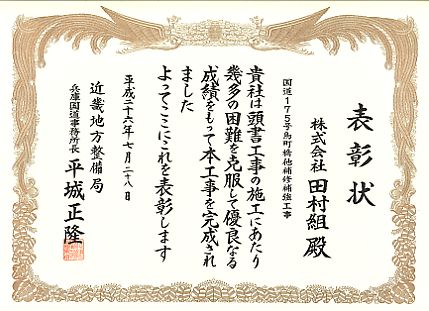 表彰状
株式会社 田村組 殿
国道175号烏町橋他補修補強工事
貴社は頭書工事の施工にあたり
幾多の困難を克服して優良なる
成績をもって本工事を完成され
ました
よってここにこれを表彰します
平成二十六年七月二十八日
近畿地方整備局
兵庫国道事務所長 平城正隆